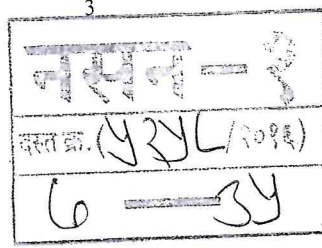 3
नसन - १
दस्त क्र. (५२५८/२०१६)
७ — ३५